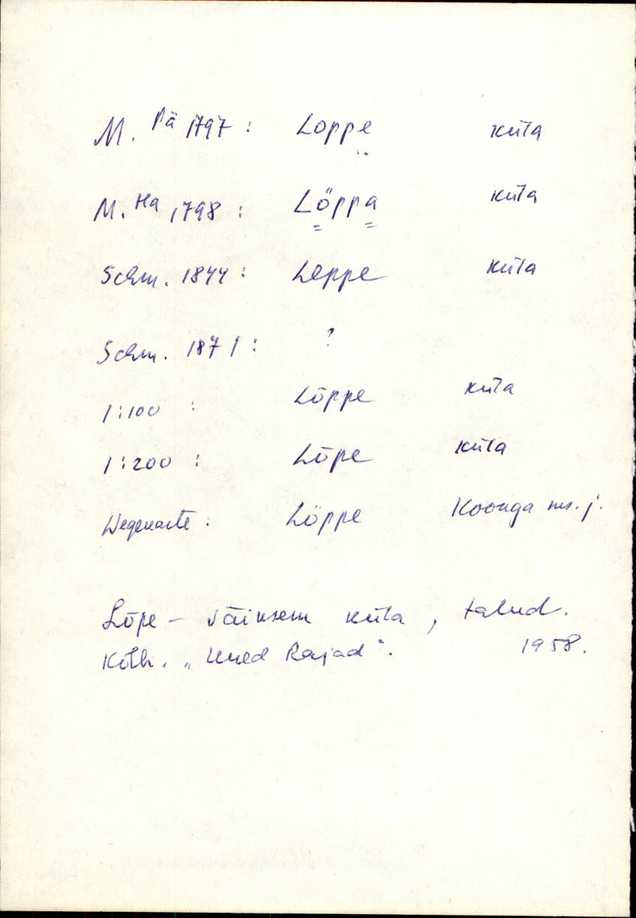 M. Pä 1797 : Loppe küla
M. Ha 1798 : Löppa küla
Schm. 1844 : Leppe küla
Schm. 1871 : ?
1:100 : Lõppe küla
1:200 : Lõpe küla
Wegekarte : Löppe Koonga ms. j.
Lõpe – väiksem küla, talud.
Kolh. „Uued Rajad“. 1958.